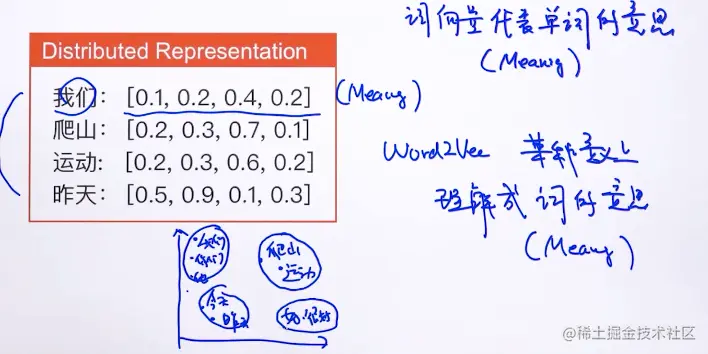 Distributed Representation
我们: [0.1, 0.2, 0.4, 0.2]
爬山: [0.2, 0.3, 0.7, 0.1]
运动: [0.2, 0.3, 0.6, 0.2]
昨天: [0.5, 0.9, 0.1, 0.3]
(Meang)
词向量代表单词的意思
(Meang)
Word2Vec 某种意义上
理解成 词的意思
(Meang)
爬山
运动
今天
昨天
@稀土掘金技术社区